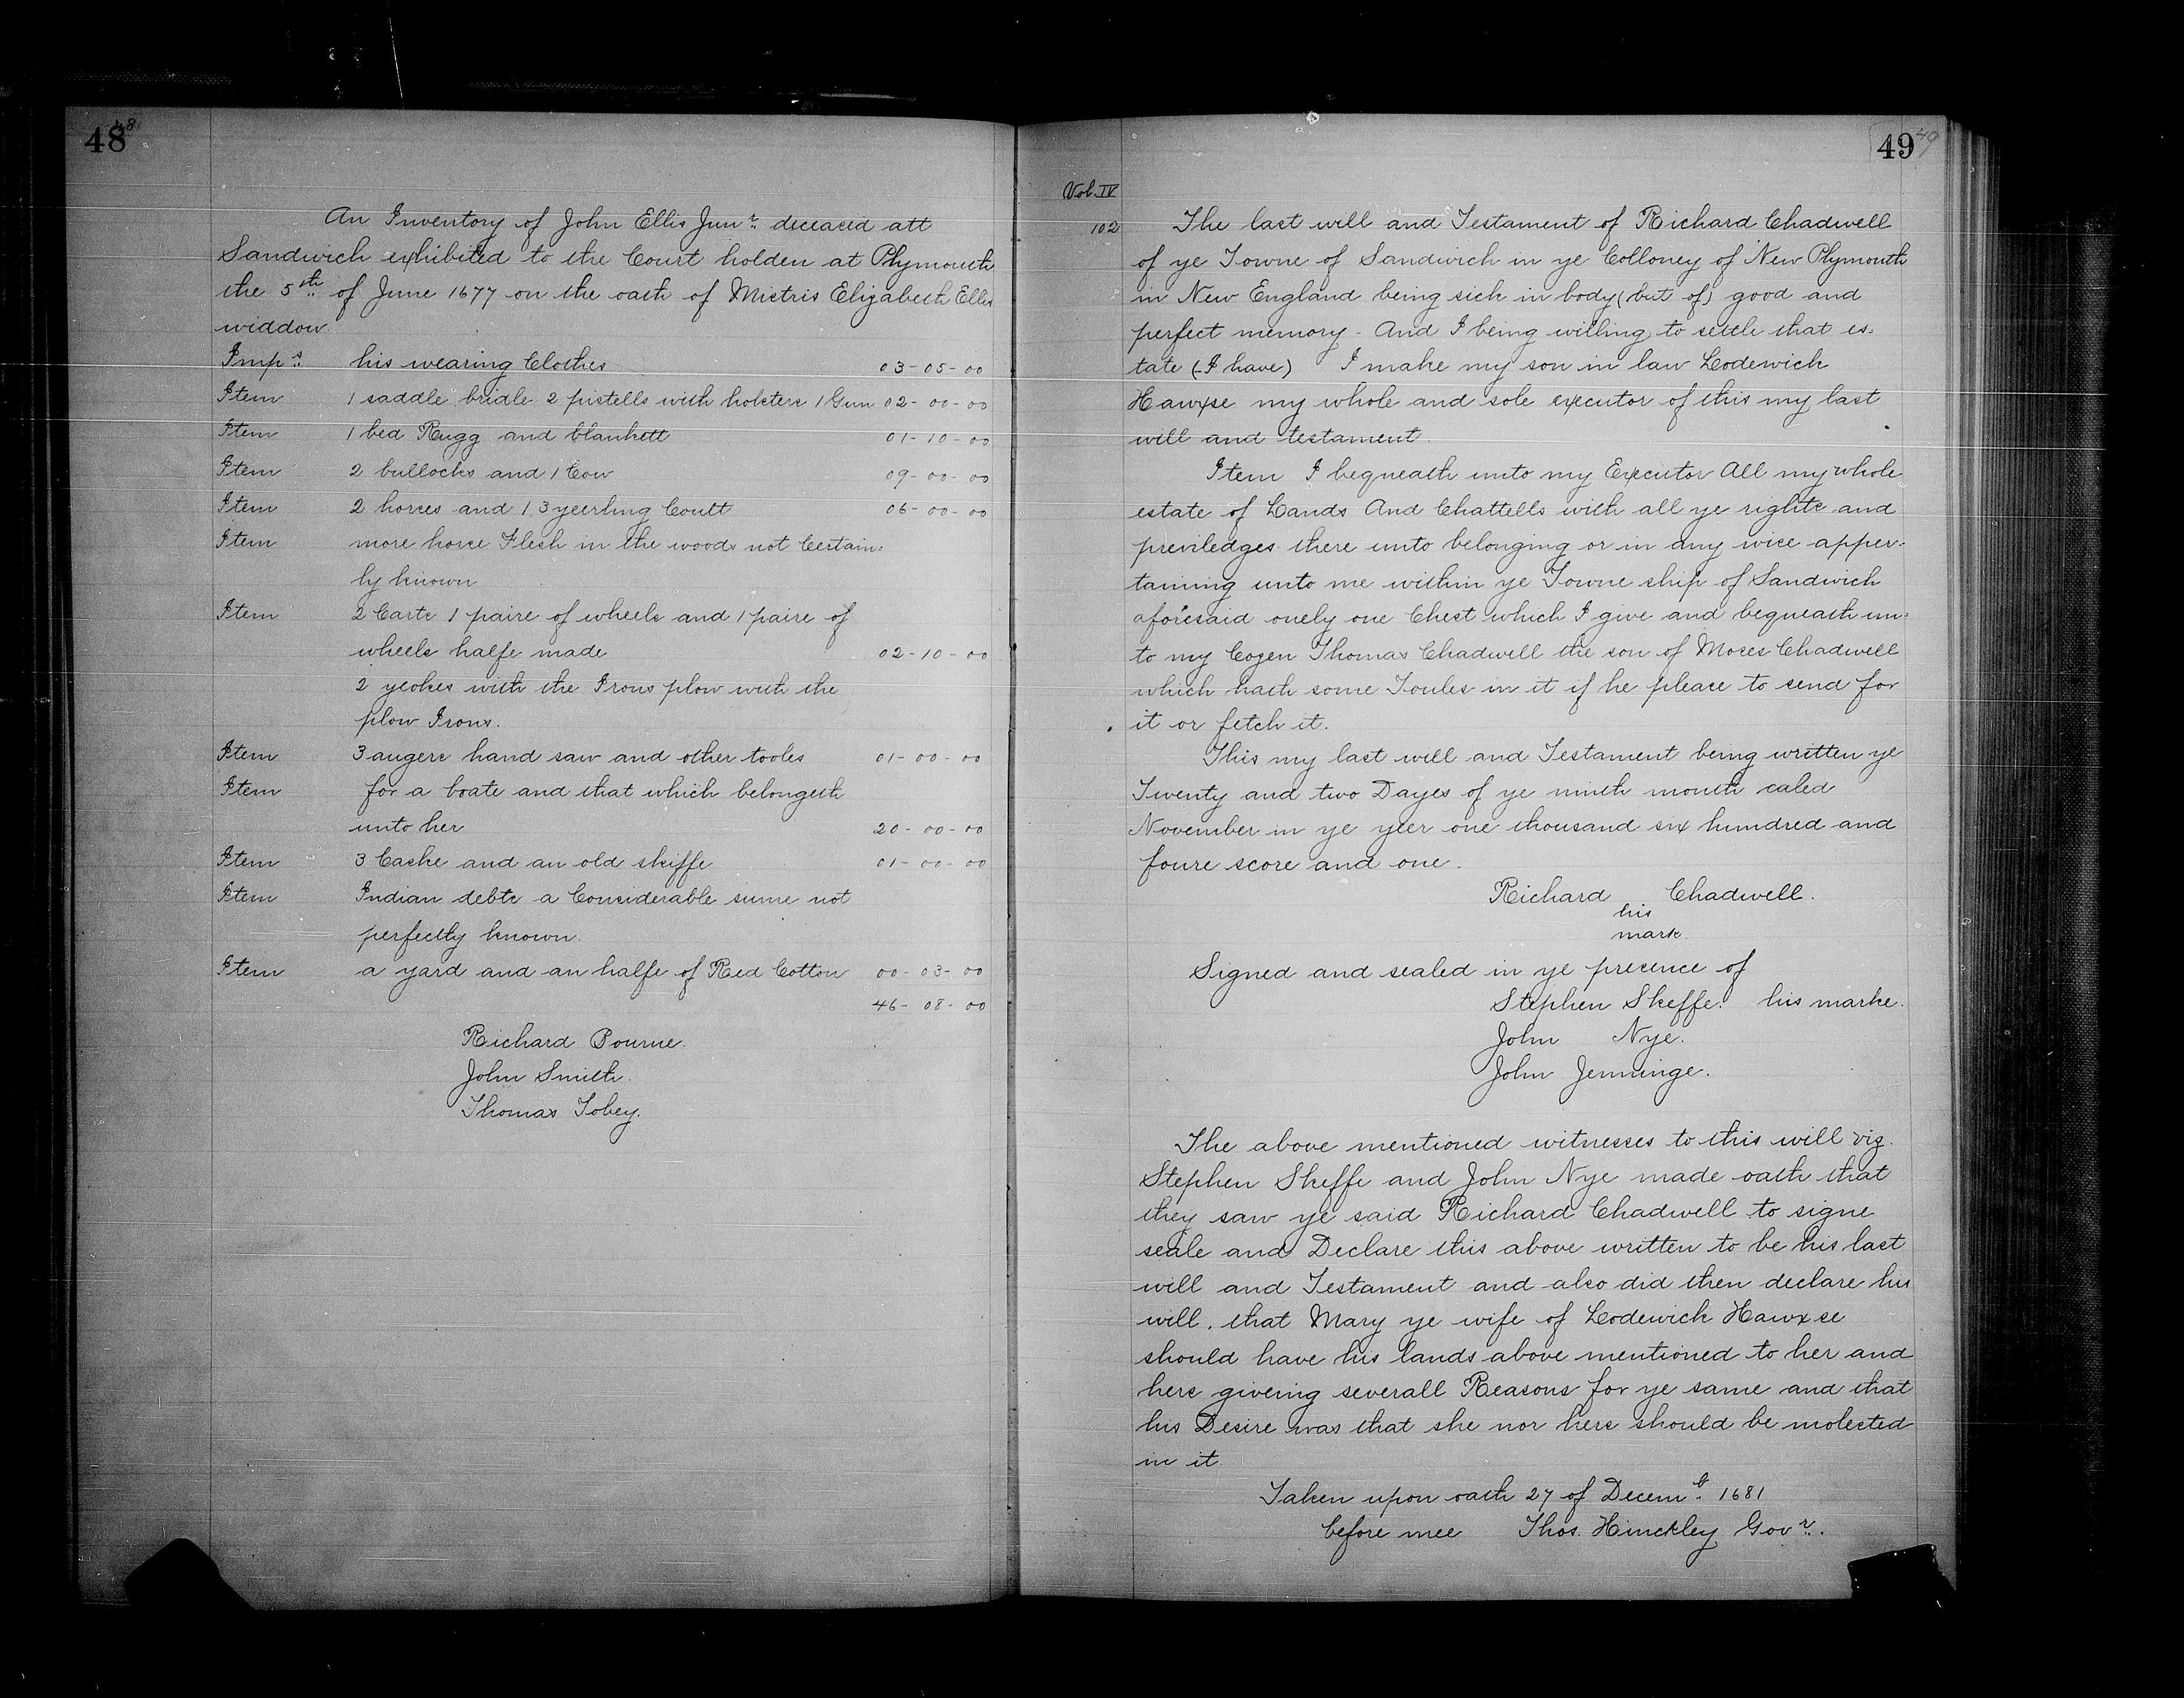 48
An Inventory of John Ellis Junr. deceased att
Sandwich exhibited to the Court holden at Plymouth
the 5th of June 1677 on the oath of Mistris Elizabeth Ellis
widdow
Imps. his wearing Clothes 03-05-00
Item 1 saddle bridle 2 pistells with holsters 1 Gun 02-00-00
Item 1 bed Rugg and blankett 01-10-00
Item 2 bullocks and 1 Cow 09-00-00
Item 2 horses and 1 3 yeerling Coult 06-00-00
Item more horse Flesh in the woods not Certain:
ly known
Item 2 Carts 1 paire of wheels and 1 paire of
wheels halfe made 02-10-00
2 yeokes with the Irons plow with the
plow Irons.
Item 3 augers hand saw and other tooles 01-00-00
Item for a boate and that which belongeth
unto her 20-00-00
Item 3 Caske and an old skiffe 01-00-00
Item Indian debts a Considerable sume not
perfectly known.
Item a yard and an halfe of Red Cotton 00-03-00
46-08-00
Richard Bourne.
John Smith.
Thomas Tobey.
49
Vol. IV
102 The last will and Testament of Richard Chadwell
of ye Towne of Sandwich in ye Colloney of New Plymouth
in New England being sick in body (but of) good and
perfect memory - And I being willing to settle that es-
tate (I have) I make my son in law Lodewick
Hawxse my whole and sole executor of this my last
will and testament.
Item I bequeath unto my Executor All my whole
estate of Lands And Chattells with all ye rights and
previledges there unto belonging or in any wise apper-
taining unto me within ye Towne ship of Sandwich
aforesaid onely one Chest which I give and bequeath un-
to my Cozen Thomas Chadwell the son of Moses Chadwell
which hath some Toules in it if he please to send for
it or fetch it.
This my last will and Testament being written ye
Twenty and two Dayes of ye ninth month caled
November in ye yeer one thousand six hundred and
foure score and one.
Richard Chadwell.
his
mark.
Signed and sealed in ye presence of
Stephen Skeffe. his marke.
John Nye.
John Jennings.
The above mentioned witnesses to this will viz.
Stephen Skeffe and John Nye made oath that
they saw ye said Richard Chadwell to signe
seale and Declare this above written to be his last
will and Testament and also did then declare his
will. that Mary ye wife of Lodewick Hawxse
should have his lands above mentioned to her and
hers giveing severall Reasons for ye same and that
his Desire was that she nor hers should be molested
in it.
Taken upon oath 27 of Decemb. 1681
before mee Thos. Hinckley Govr.